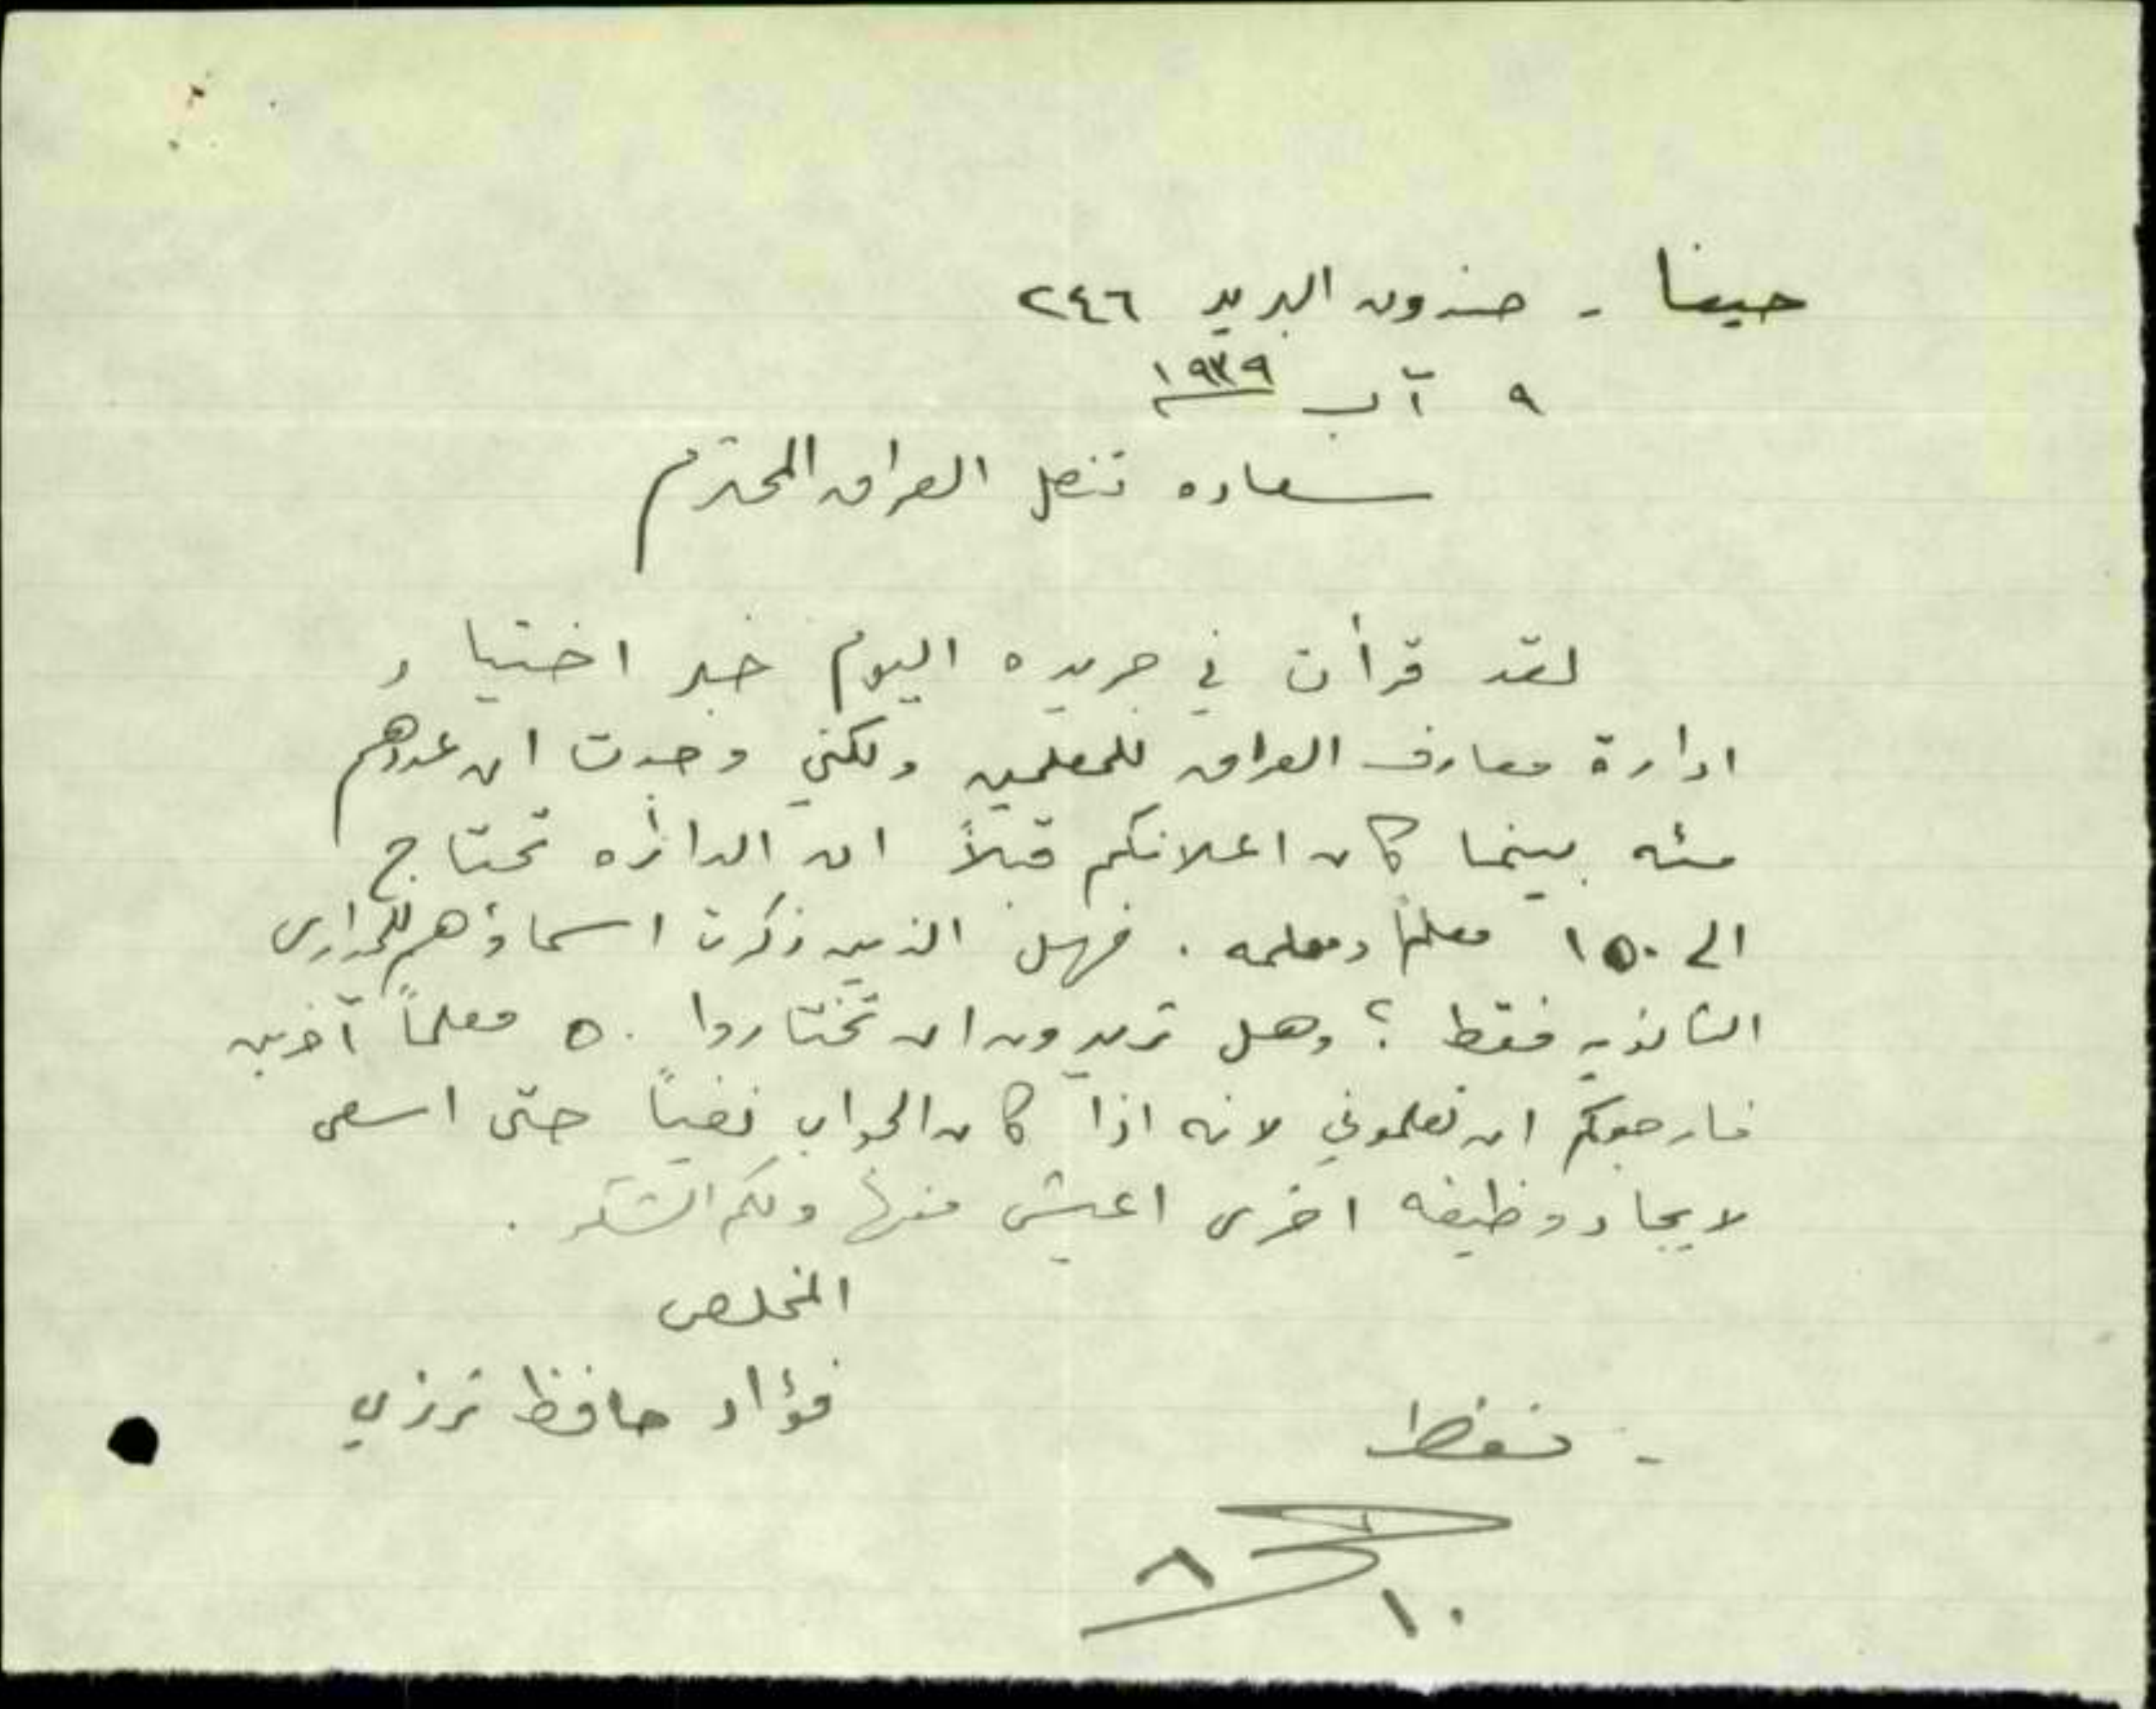 حيفا - صندوق البريد ٢٤٦
٩ آب ١٩٣٩
سعاده قنصل العراق المحترم
لقد قرأت في جريده اليوم خبر اختيار
ادارة معارف العراق للمعلمين ولكني وجدت ان عددهم
مئه بينما كان اعلانكم قبلاً ان الدائره تحتاج
الى ١٥٠ معلماً ومعلمه . فهل الذين ذكرت اسماؤهم للمدارس
الثانويه فقط ؟ وهل تريدون ان تختاروا ٥٠ معلماً آخرين
فارجوكم ان تعلموني لانه اذا كان الجواب نفياً حتى اسعى
لايجاد وظيفه اخرى اعيش منها ولكم الشكر .
المخلص
فؤاد حافظ ترزي
- تحفظ
١٠
٨